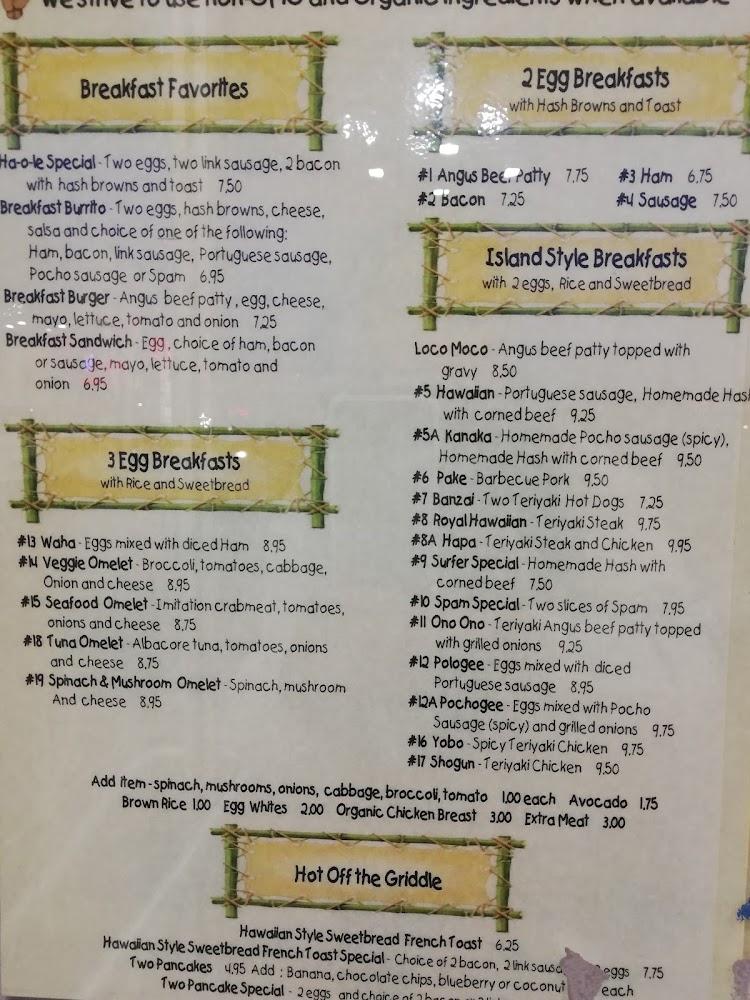 We strive to use non-GMO and organic ingredients when available
Breakfast Favorites
Ha-o-le Special - Two eggs, two link sausage, 2 bacon
with hash browns and toast 7.50
Breakfast Burrito - Two eggs, hash browns, cheese,
salsa and choice of one of the following:
Ham, bacon, link sausage, Portuguese sausage,
Pocho sausage or Spam 6.95
Breakfast Burger - Angus beef patty, egg, cheese,
mayo, lettuce, tomato and onion 7.25
Breakfast Sandwich - Egg, choice of ham, bacon
or sausage, mayo, lettuce, tomato and
onion 6.95
3 Egg Breakfasts
with Rice and Sweetbread
#13 Waha - Eggs mixed with diced Ham 8.95
#14 Veggie Omelet - Broccoli, tomatoes, cabbage,
Onion and cheese 8.95
#15 Seafood Omelet - Imitation crabmeat, tomatoes,
onions and cheese 8.75
#18 Tuna Omelet - Albacore tuna, tomatoes, onions
and cheese 8.75
#19 Spinach & Mushroom Omelet - Spinach, mushroom
And cheese 8.95
2 Egg Breakfasts
with Hash Browns and Toast
#1 Angus Beef Patty 7.75 #3 Ham 6.75
#2 Bacon 7.25 #4 Sausage 7.50
Island Style Breakfasts
with 2 eggs, Rice and Sweetbread
Loco Moco - Angus beef patty topped with
gravy 8.50
#5 Hawaiian - Portuguese sausage, Homemade Hash
with corned beef 9.25
#5A Kanaka - Homemade Pocho sausage (spicy),
Homemade Hash with corned beef 9.50
#6 Pake - Barbecue Pork 9.50
#7 Banzai - Two Teriyaki Hot Dogs 7.25
#8 Royal Hawaiian - Teriyaki Steak 9.75
#8A Hapa - Teriyaki Steak and Chicken 9.95
#9 Surfer Special - Homemade Hash with
corned beef 7.50
#10 Spam Special - Two slices of Spam 7.95
#11 Ono Ono - Teriyaki Angus beef patty topped
with grilled onions 9.25
#12 Pologee - Eggs mixed with diced
Portuguese sausage 8.95
#12A Pochogee - Eggs mixed with Pocho
Sausage (spicy) and grilled onions 9.75
#16 Yobo - Spicy Teriyaki Chicken 9.75
#17 Shogun - Teriyaki Chicken 9.50
Add item - spinach, mushrooms, onions, cabbage, broccoli, tomato 1.00 each Avocado 1.75
Brown Rice 1.00 Egg Whites 2.00 Organic Chicken Breast 3.00 Extra Meat 3.00
Hot Off the Griddle
Hawaiian Style Sweetbread French Toast 6.25
Hawaiian Style Sweetbread French Toast Special - Choice of 2 bacon, 2 link eggs 7.75
Two Pancakes 4.95 Add : Banana, chocolate chips, blueberry or coconut each
Two Pancake Special - 2 eggs and choice of 2 bacon